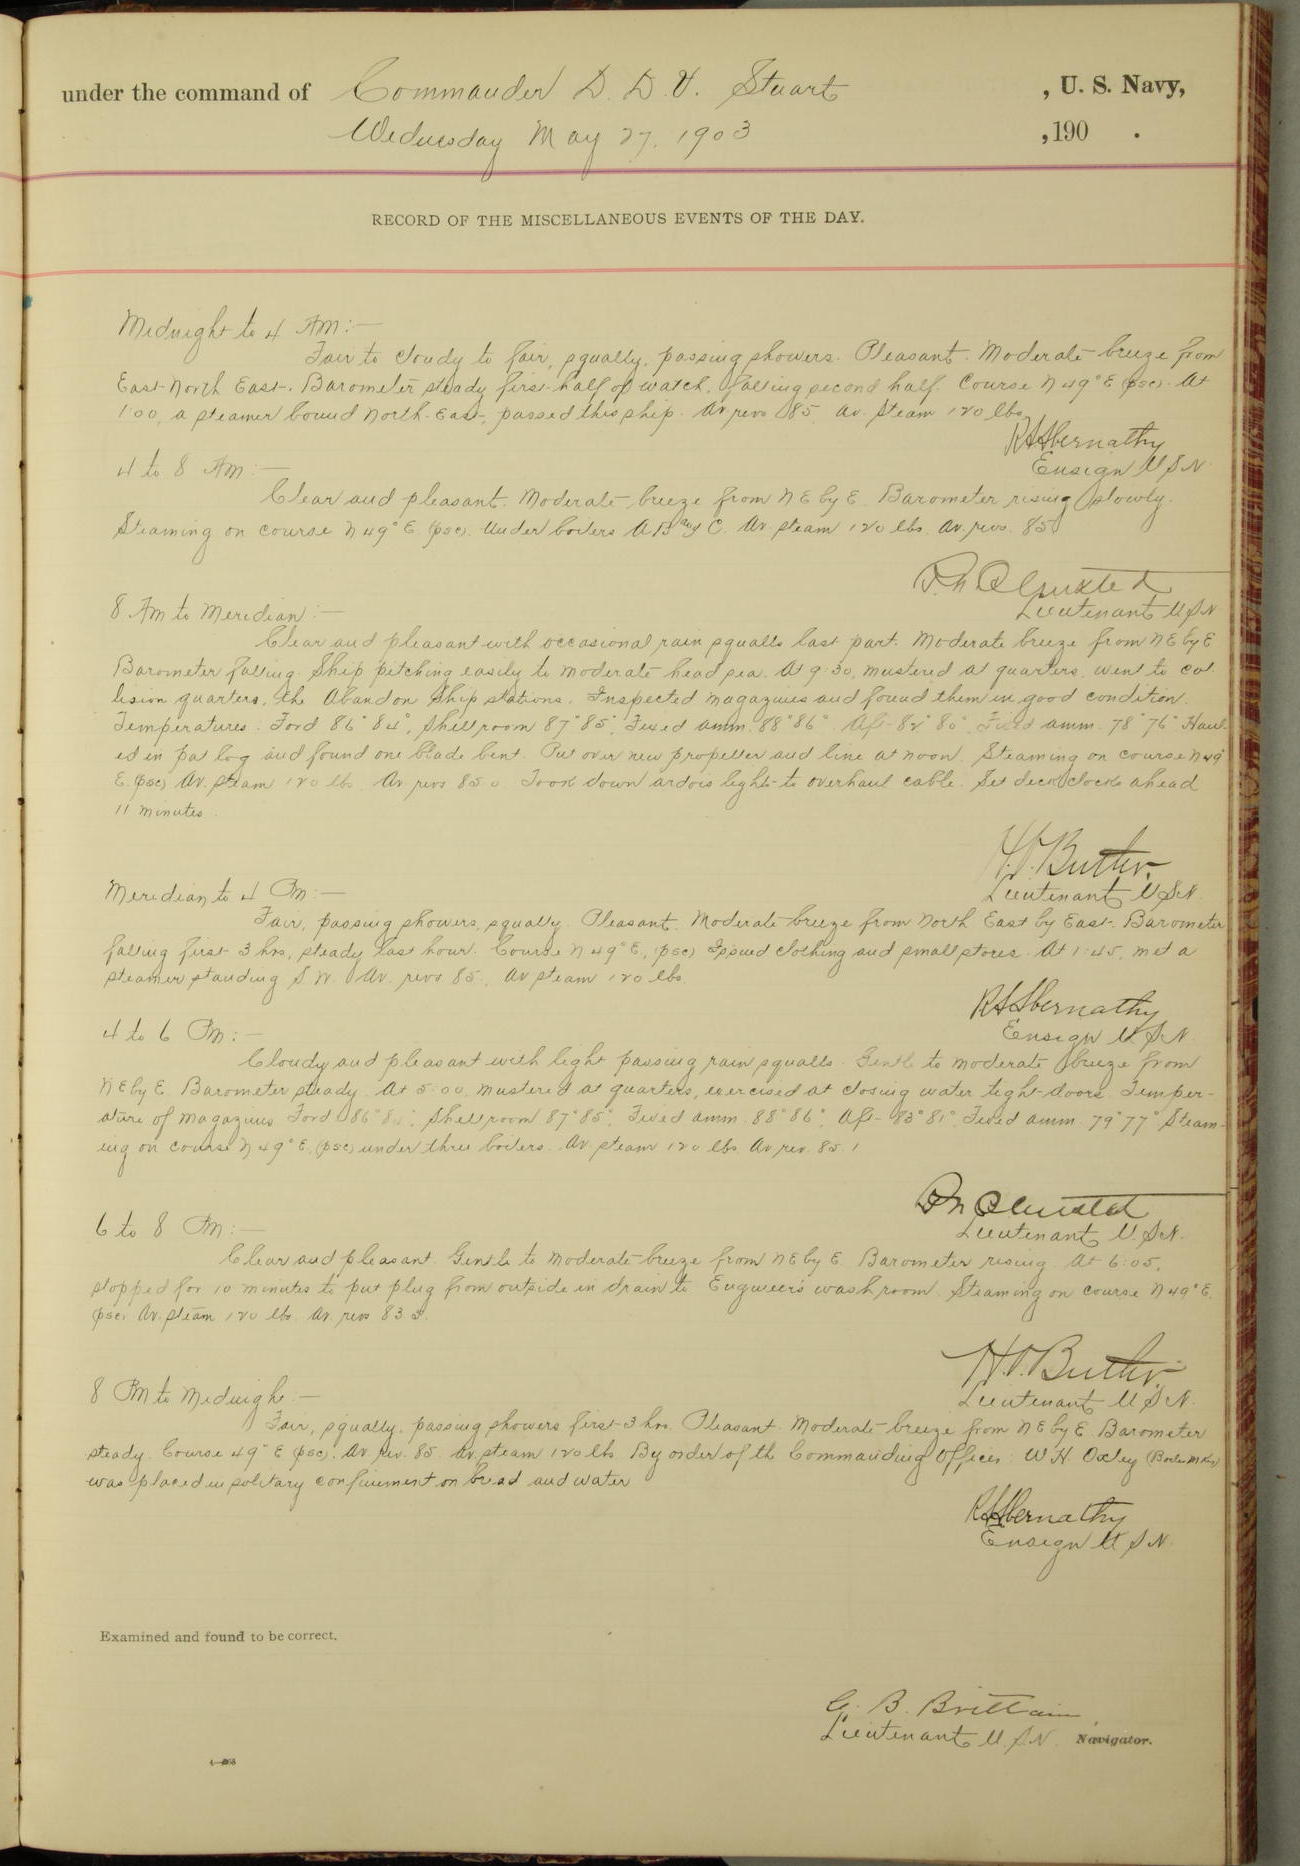 under the command of Commander D. D. V. Stuart, U. S. Navy,
Wednesday May 27, 1903 , 190 .
RECORD OF THE MISCELLANEOUS EVENTS OF THE DAY.
Midnight to 4 AM:—
Fair to cloudy to fair, squally, passing showers. Pleasant. Moderate breeze from
East North East. Barometer steady first half of watch, falling second half. Course N 49° E (psc). At
1:00, a steamer bound North East, passed this ship. Av revs 85. Av. Steam 120 lbs.
R S Abernathy
Ensign U S N.
4 to 8 AM:—
Clear and pleasant. Moderate breeze from N E by E. Barometer rising slowly.
Steaming on course N 49° E. (psc). Under boilers A B and C. Av. steam 120 lbs. Av. revs. 85
P. N. Olmsted
Lieutenant U S N
8 AM to Meridian:—
Clear and pleasant with occasional rain squalls last part. Moderate breeze from N E by E
Barometer falling. Ship pitching easily to moderate head sea. At 9:30, mustered at quarters, went to col-
lision quarters, the Abandon Ship stations. Inspected magazines and found them in good condition.
Temperatures. Ford 86° 84°, Shell room 87° 85°, Fixed amm. 88° 86° Aft 82° 80°, Fixed amm. 78° 76° Haul-
ed in pat log and found one blade bent. Put over new propeller and line at noon. Steaming on course N 49°
E. (psc) Av. steam 120 lbs. Av revs 85.0 Took down ardois lights to overhaul cable. Set deck clock ahead
11 minutes.
H. V. Butler.
Lieutenant U S N.
Meridian to 4 PM:—
Fair, passing showers, squally. Pleasant. Moderate breeze from North East by East. Barometer
falling first 3 hrs, steady last hour. Course N 49° E. (psc) Issued clothing and small stores. At 1:45, met a
steamer standing S W. Av. revs 85. Av steam 120 lbs
R S Abernathy
Ensign U S N.
4 to 6 PM:—
Cloudy and pleasant with light passing rain squalls. Gentle to moderate breeze from
N E by E. Barometer steady. At 5:00, mustered at quarters, exercised at closing water tight doors. Temper-
ature of magazines Ford 86° Shell room 87° 85°, Fixed amm. 88° 86°, Aft 83° 81° Fixed amm. 79° 77° Steam-
ing on course N 49° E. (psc) under three boilers. Av steam 120 lbs. Av rev. 85.1
P. N. Olmsted
Lieutenant U. S. N.
6 to 8 PM:—
Clear and pleasant. Gentle to moderate breeze from N E by E. Barometer rising. At 6:05,
stopped for 10 minutes to put plug from outside in drain to Engineer's wash room. Steaming on course N 49° E.
(psc) Av. steam 120 lbs. Av. revs 83.5.
H. V. Butler
Lieutenant U S N.
8 PM to Midnigh:—
Fair, squally, passing showers first 3 hrs. Pleasant. Moderate breeze from N E by E. Barometer
steady. Course 49° E (psc). Av rev. 85. Av. steam 120 lbs. By order of the Commanding Officer. W. H. Oxley
was placed in solitary confinement on bread and water
R S Abernathy
Ensign U S N.
Examined and found to be correct.
G. B. Brittain,
Lieutenant U. S. N. Navigator.